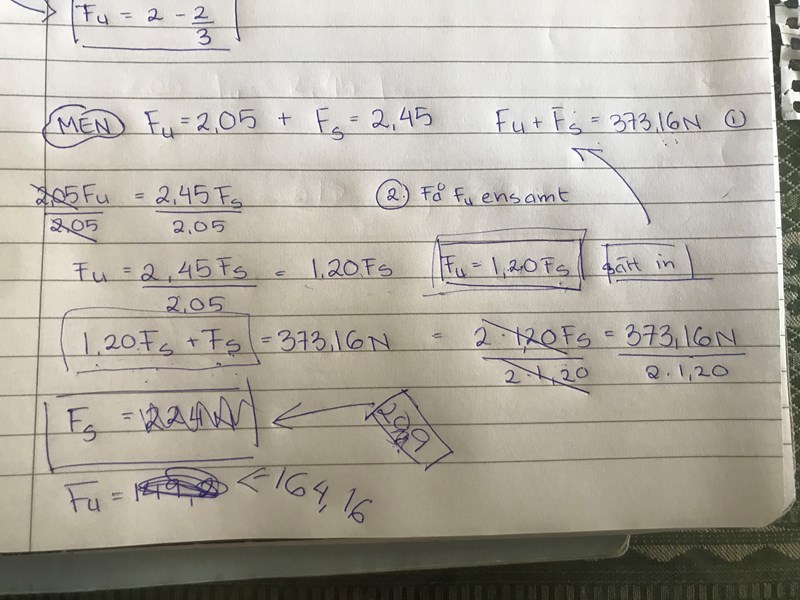 Fu = 2 - 2/3
MEN Fu = 2,05 + Fs = 2,45 Fu + Fs = 373,16N ①
2,05Fu/2,05 = 2,45Fs/2,05 ② Få Fu ensamt
Fu = 2,45Fs/2,05 = 1,20Fs Fu = 1,20Fs sätt in
1,20Fs + Fs = 373,16N = 2·1,20Fs/2·1,20 = 373,16N/2·1,20
Fs = ←
Fu = ← 164,16